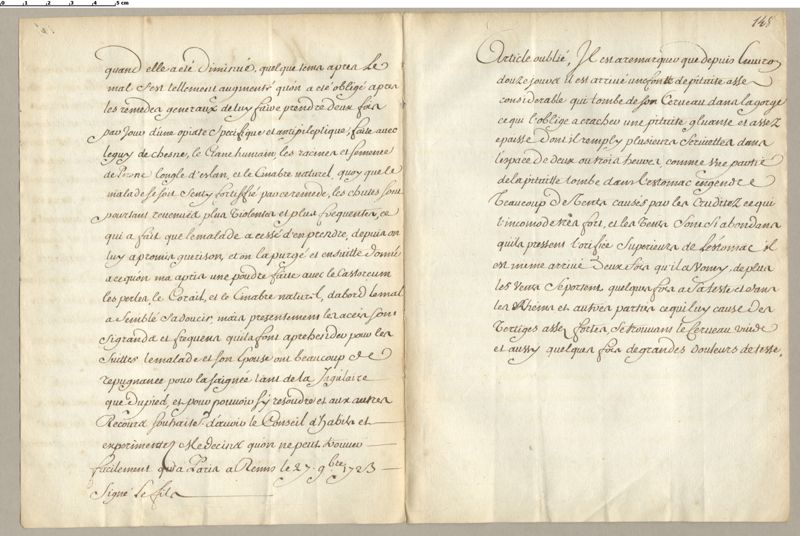 quand elle a été diminué, quelque tems apres Le
mal s'est tellement augmenté qu'on a eté obligé apres
les remedes generaux de luy faire prendre deux fois
par Jour d'une opiate specifique et antipileptique, faite avec
leguy de chesne, le Crane humain, les racines et semence
de l'ongle d'eslan, et le Cinabre naturel, quoy que le
malade se soit senty fortiffié par ce remede, les chutes sont
pourtant revenues plus violentes et plus frequentes, ce
qui a fait que le malade a cessé d'en prendre, depuis on
luy a promis guerison, et on la purgé et ensuitte donné
a ce qu'on ma apris une poudre faite avec le Castoreum
les perles, le Corail, et le Cinabre naturel, d'abord le mal
a semblé s'adoucir, mais presentement les acces sont
si grands et frequens qu'ils font aprehender pour les
suittes le malade et son Epouse ont beaucoup de
repugnance pour la saignée tant de la Jugulaire
que du pied, et pour pouvoir s'y resoudre et aux autres
Recours souhaite d'avoir le Conseil d'habils et
experimentez Medecins qu'on ne peut trouver
facilement qu'a Paris a Rennes le 27. 9bre 1723
Signé Le fils
145
Article oublié, Il est a remarquer que depuis Environ
douze jours il est arrivé une fonte de pituite assez
considerable qui tombe de son Cerveau dans la gorge
ce qui l'oblige a cracher une pituite gluante et assez
epaisse dont il remply plusieurs serviettes dans
l'espace de deux ou trois heures, comme une partie
de la pituitte tombe dans l'estomac engendre
beaucoup de vents causés par les cruditez ce qui
l'incomode tres fort, et les vents sont si abondans
qu'ils pressent l'orifice superieure de l'estomac il
est meme arrivé deux fois qu'il a vomy, de plus
les vents se portent quelques fois a sa teste et dans
les Reins et autres parties ce qui luy cause des
vertiges assez fortes se trouvant le cerveau vuide
et aussy quelques fois de grandes douleurs de teste.
0 1 2 3 4 5 cm